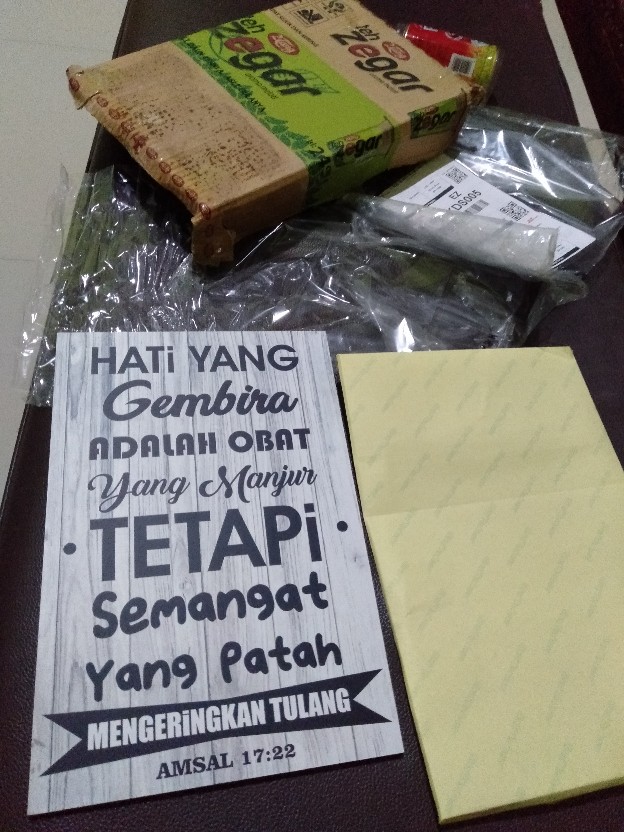 teh
zegar
teh
zegar
zegar
zegar
EZ
DS005
HATi YANG
Gembira
ADALAH OBAT
Yang Manjur
• TETAPi •
Semangat
Yang Patah
MENGERiNGKAN TULANG
AMSAL 17:22